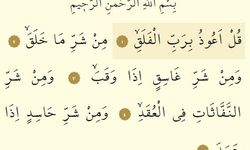 بِسْمِ اللّٰهِ الرَّحْمٰنِ الرَّحِيمِ
قُلْ اَعُوذُ بِرَبِّ الْفَلَقِۙ ﴿١﴾ مِنْ شَرِّ مَا خَلَقَۙ ﴿٢﴾
وَمِنْ شَرِّ غَاسِقٍ اِذَا وَقَبَۙ ﴿٣﴾ وَمِنْ شَرِّ
النَّفَّاثَاتِ فِي الْعُقَدِۙ ﴿٤﴾ وَمِنْ شَرِّ حَاسِدٍ اِذَا